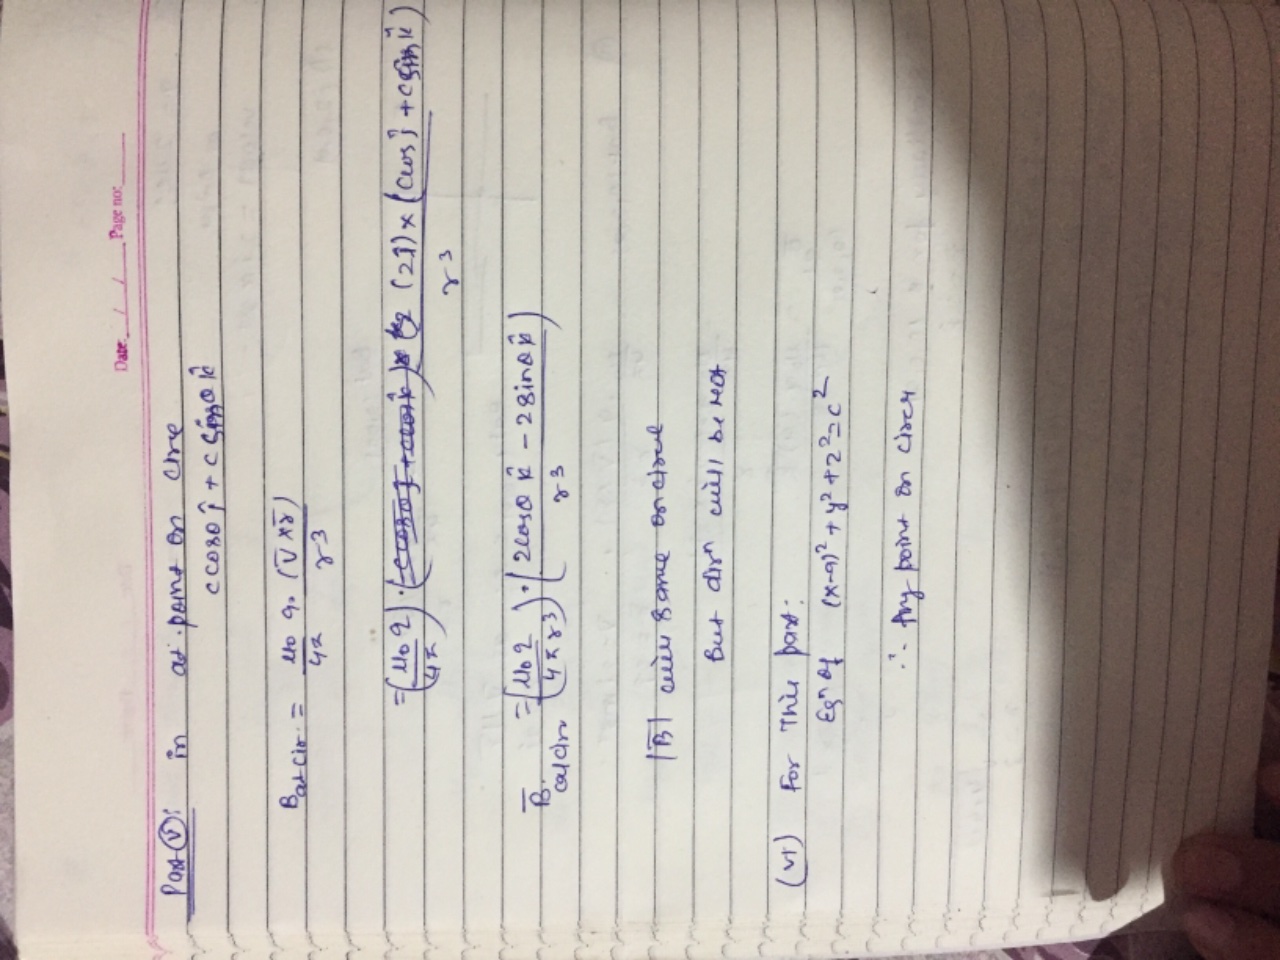 Date: / / Page no:
Part (v): in at point on circe
c cosθ ĵ + c sinθ k̂
B at cir. = μ0 q. (v̄ × r̄) / 4π r³
= (μ0 q / 4π) · (2î) × (c cos ĵ + c sin k̂) / r³
B̄ at cir = (μ0 q / 4π r³) · (2cosθ k̂ - 2sinθ k̂) / r³
|B̄| will same on circle
But dirⁿ will be not
(vi) For this part:
Eqⁿ of (x-a)² + y² + z² = c²
∴ Any point on circle